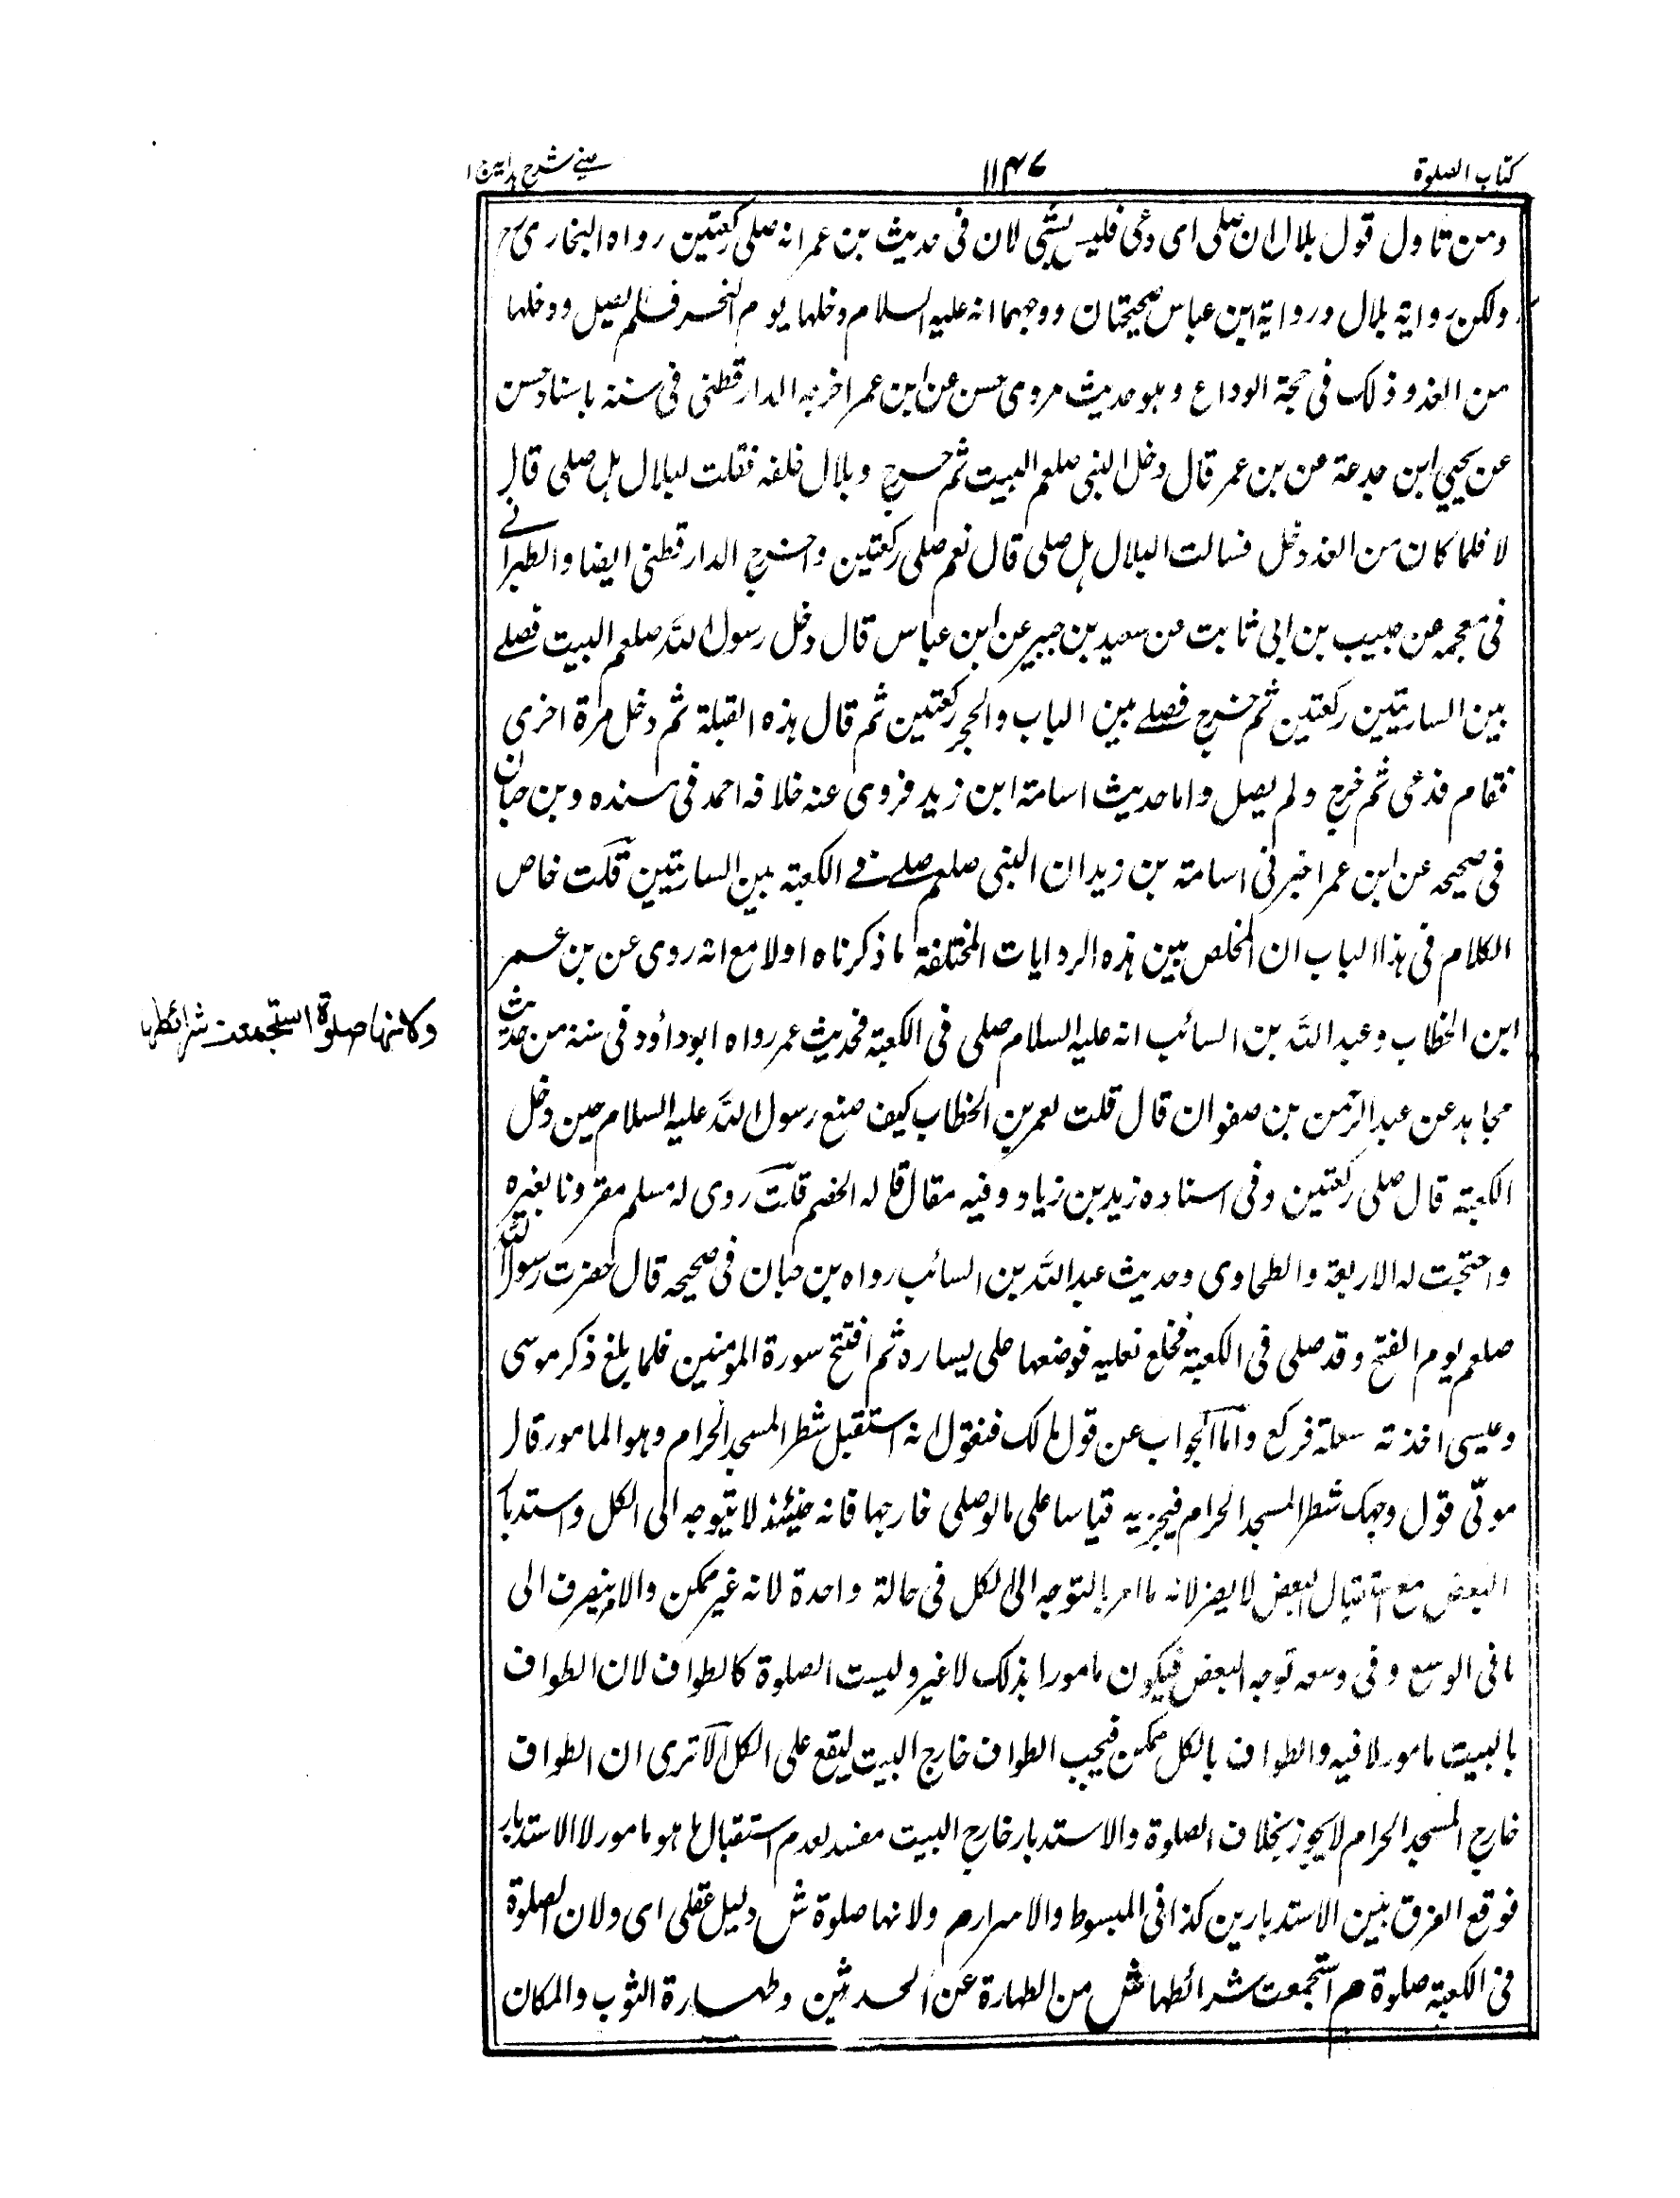 كتاب الصلوة
١١٤٧
عينى شرح هداية ج ١
ومن تاول قول بلال انه صلى اى دعى فليس بشئ لان فى حديث بن عمر انه صلى ركعتين رواه البخارى
ولكن رواية بلال ورواية ابن عباس صحيحتان ووجهما انه عليه السلام دخلها يوم النحر فلم يصل ودخلها
من الغد وذلك فى حجة الوداع وهو حديث مروى حسن عن ابن عمر اخرجه الدارقطنى فى سننه باسناد حسن
عن يحيى ابن جعدة عن بن عمر قال دخل النبى صلعم البيت ثم خرج وبلال خلفه فقلت لبلال هل صلى قال
لا فلما كان من الغد دخل فسالت البلال هل صلى قال نعم صلى ركعتين واخرج الدارقطنى ايضا والطبرانى
فى معجمه عن حبيب بن ابى ثابت عن سعيد بن جبير عن ابن عباس قال دخل رسول الله صلعم البيت فصلى
بين الساريتين ركعتين ثم خرج فصلى بين الباب والحجر ركعتين ثم قال هذه القبلة ثم دخل مرة اخرى
فقام فدعى ثم خرج ولم يصل واما حديث اسامة ابن زيد فروى عنه خلافه احمد فى سنده وبن حبان
فى صحيحه عن ابن عمر اخبرنى اسامة بن زيد ان النبى صلعم صلى فى الكعبة بين الساريتين قلت خاص
الكلام فى هذا الباب ان المخلص بين هذه الروايات المختلفة ما ذكرناه اولا مع انه روى عن بن عمر
ابن الخطاب وعبد الله بن السائب انه عليه السلام صلى فى الكعبة فحديث عمر رواه ابو داؤد فى سننه من حديث
مجاهد عن عبد الرحمن بن صفوان قال قلت لعمر بن الخطاب كيف صنع رسول الله عليه السلام حين دخل
الكعبة قال صلى ركعتين وفى اسناده زيد بن زياد وفيه مقال قاله الخصم قلت روى له مسلم مقرونا بغيره
واحتجت له الاربعة والطحاوى وحديث عبد الله بن السائب رواه بن حبان فى صحيحه قال حضرت رسول الله
صلعم يوم الفتح وقد صلى فى الكعبة فخلع نعليه فوضعها على يساره ثم افتتح سورة المؤمنين فلما بلغ ذكر موسى
وعيسى اخذته سعلة فركع واما الجواب عن قول مالك فنقول انه استقبل شطر المسجد الحرام وهو المامور قال
مولى قول وجهك شطر المسجد الحرام فيجزيه قياسا على ما لو صلى خارجها فانه حينئذ لا يتوجه الى الكل واستدبا
البعض مع استقبال البعض لا يضر لانه ما امر بالتوجه الى الكل فى حالة واحدة لانه غير ممكن والامر ينصرف الى
ما فى الوسع وفى وسعه توجه البعض فيكون مامورا بذلك لا غير وليست الصلوة كالطواف لان الطواف
بالبيت مامور لا فيه والطواف بالكل ممكن فيجب الطواف خارج البيت ليقع على الكل الا ترى ان الطواف
خارج المسجد الحرام لا يجوز بخلاف الصلوة والاستدبار خارج البيت مفسد لعدم استقبال ما هو مامور لا الاستدبار
فوقع الفرق بين الاستدبارين كذا فى المبسوط والاسرار م ولانها صلوة ش دليل عقلى اى ولان الصلوة
فى الكعبة صلوة م استجمعت شرائطها ش من الطهارة عن الحدثين وطهارة الثوب والمكان
وكانها صلوة استجمعت شرائطها